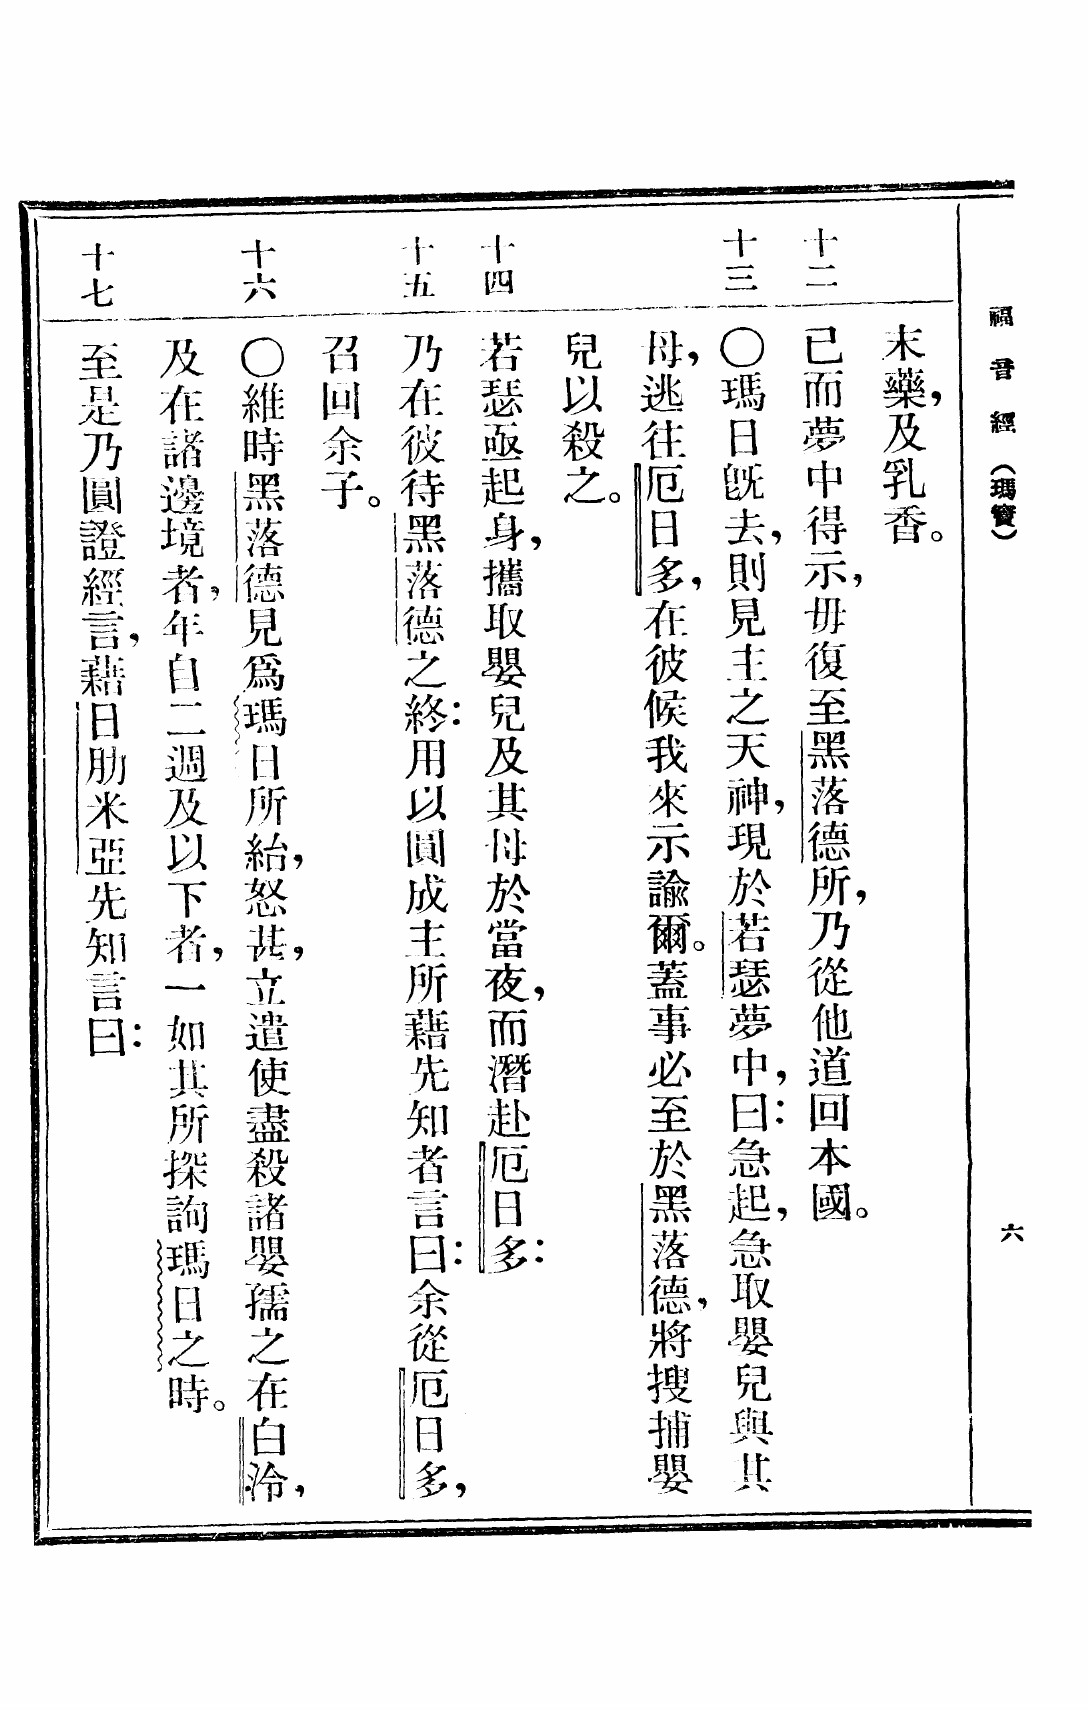 福音經(瑪竇)
六
末藥,及乳香。
十二
已而夢中得示,毋復至黑落德所,乃從他道回本國。
十三
〇瑪日旣去,則見主之天神,現於若瑟夢中,曰:急起,急取嬰兒與其
母,逃往厄日多,在彼候我來示諭爾。蓋事必至於黑落德,將搜捕嬰
兒以殺之。
十四
若瑟亟起身,攜取嬰兒及其母於當夜,而潛赴厄日多:
十五
乃在彼待黑落德之終:用以圓成主所藉先知者言曰:余從厄日多,
召回余子。
十六
〇維時黑落德見爲瑪日所紿,怒甚,立遣使盡殺諸嬰孺之在白泠,
及在諸邊境者,年自二週及以下者,一如其所探詢瑪日之時。
十七
至是乃圓證經言,藉日肋米亞先知言曰: